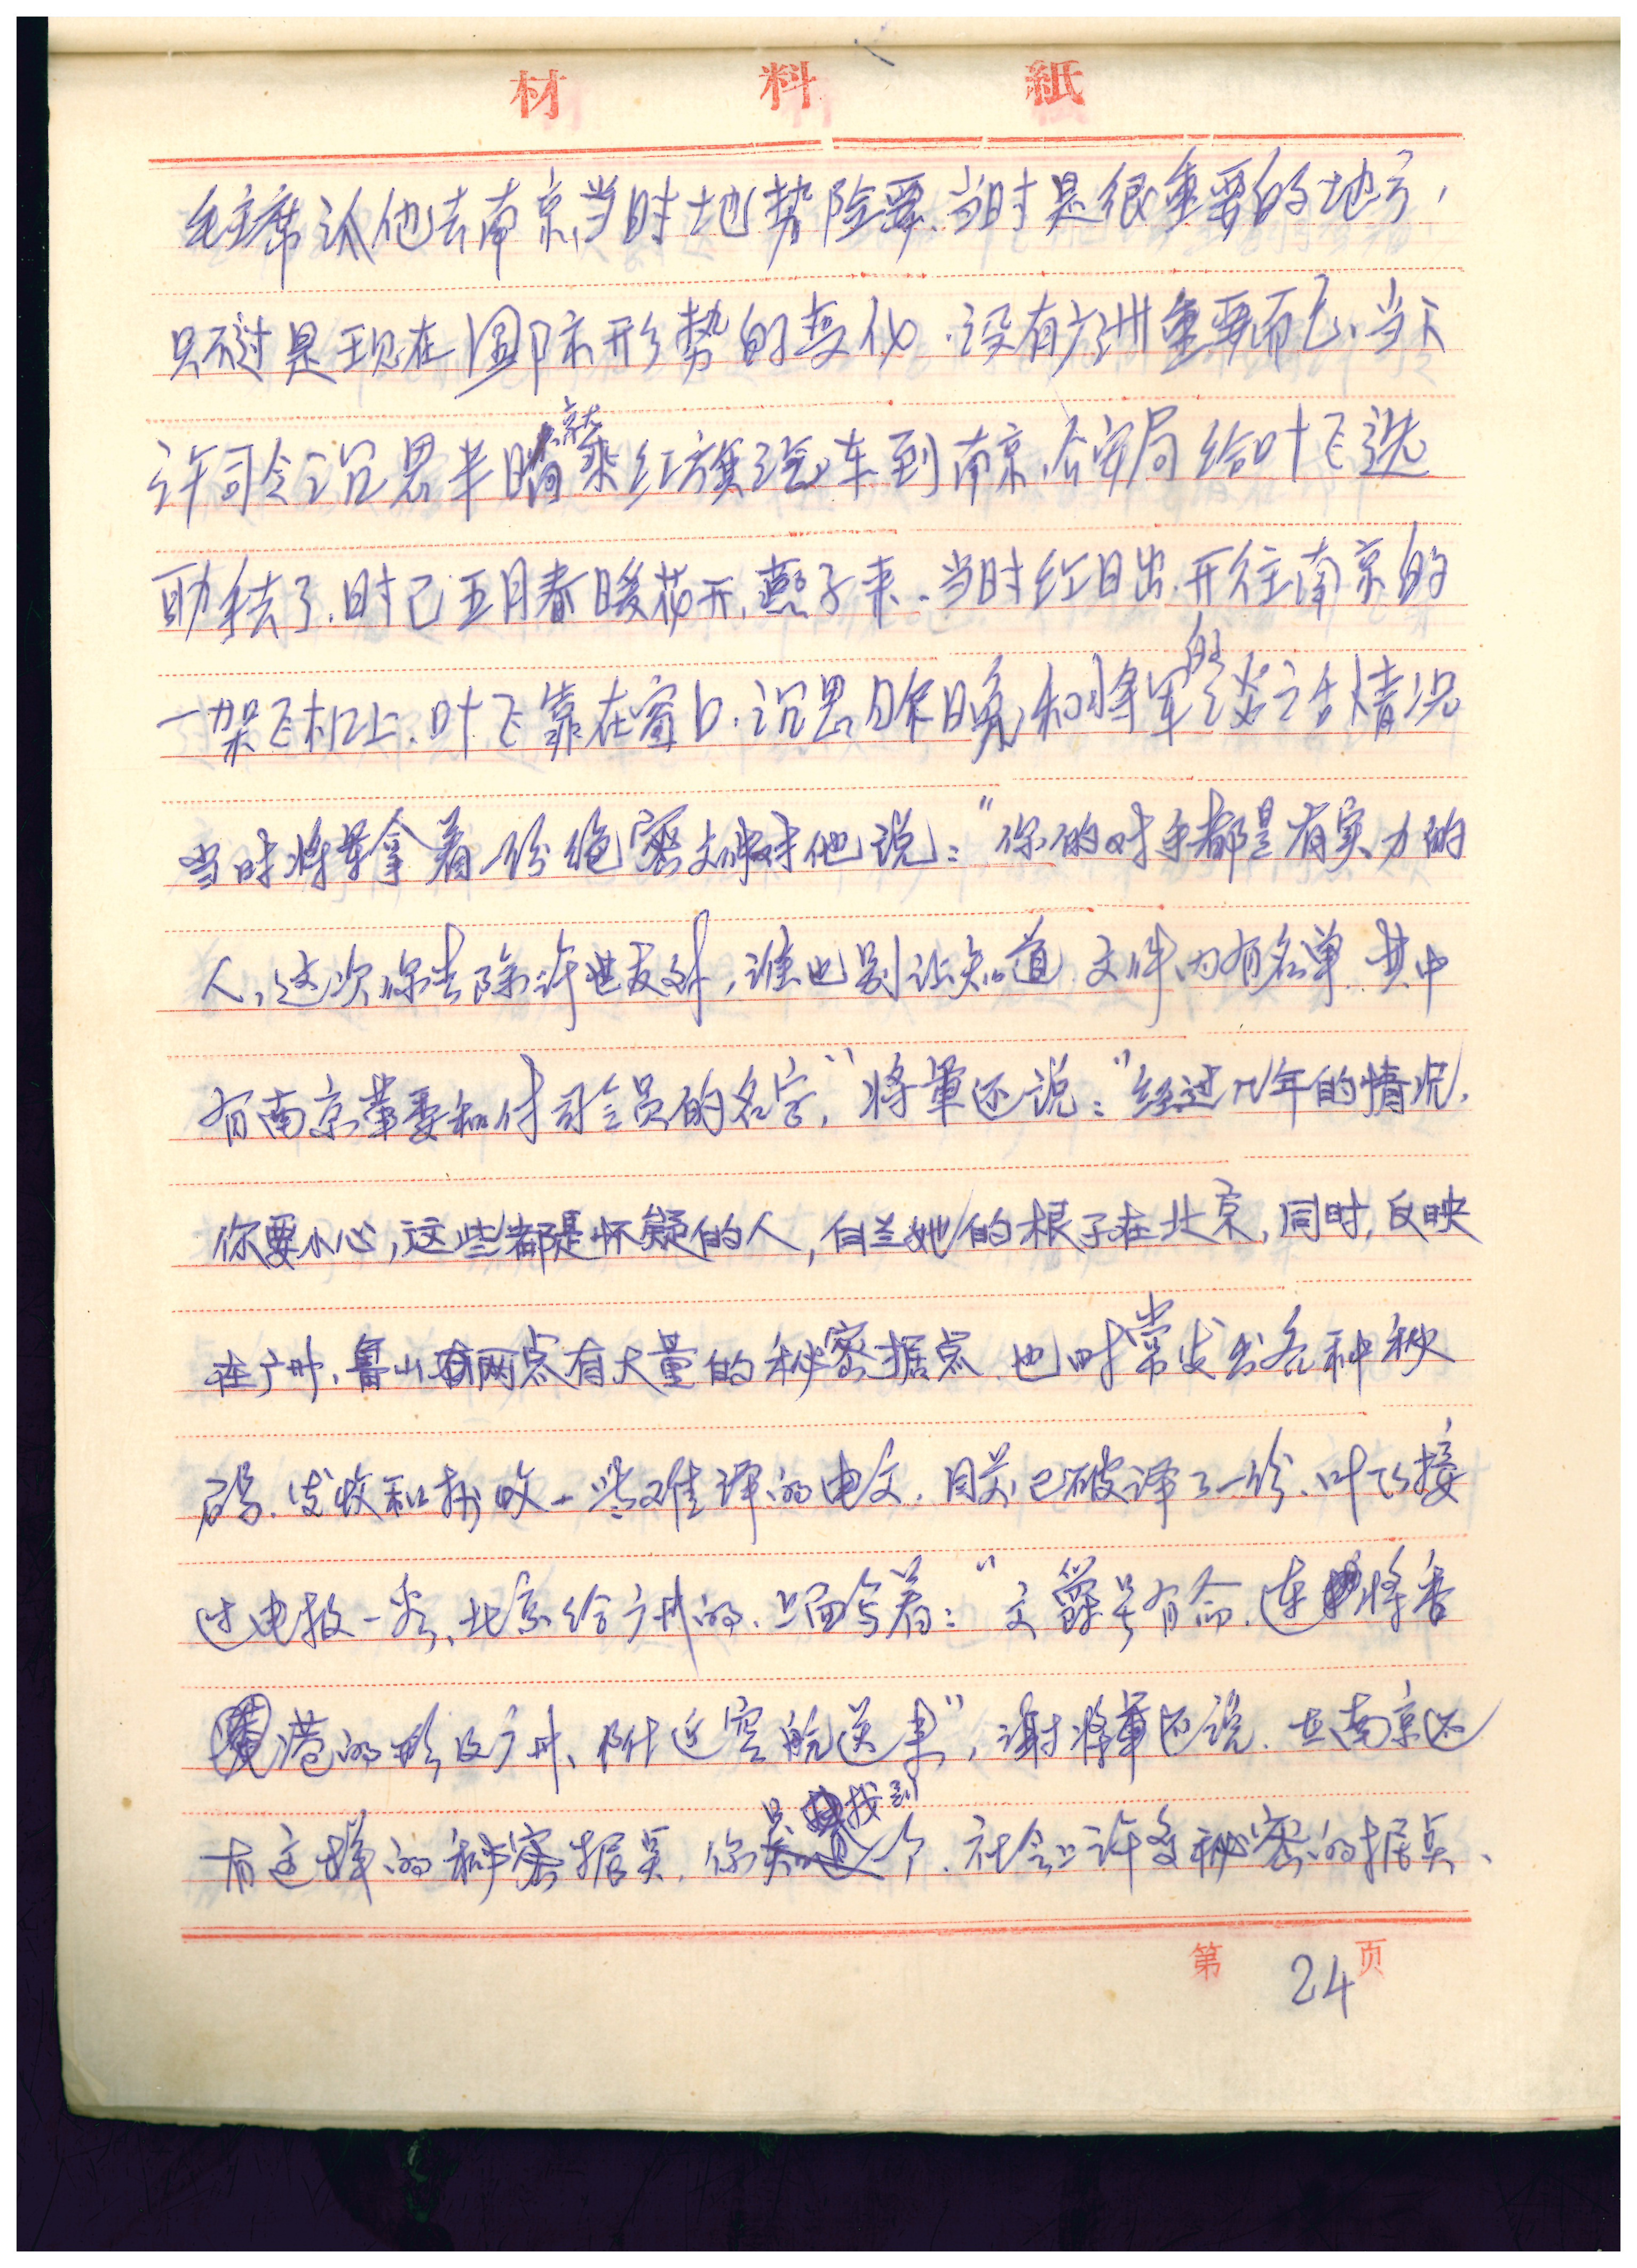 材料紙
毛主席认他去南京当时地势险要、当时是很重要的地方，
只不过是现在国际形势的变化．没有广州重要而已、当天
许司令沉思半晌就乘红旗汽车到南京．公安局给叶飞选
助手去了．时已五月春暖花开，燕子来．当时红日出．开往南京的
一架飞机上．叶飞靠在窗口．沉思昨晚和将军的谈话情况
当时将军拿着一份绝密文件对他说：“你的对手都是有实力的
人，这次你去除许世友外，谁也别让知道．文件内有名单．其中
有南京常委和付司令员的名字，”将军还说：“经过几年的情况，
你要小心，这些都是怀疑的人，白兰她的根子在北京，同时，反映
在广州、鲁山两点有大量的秘密据点．也时常发出各种秘
码．发收和抄收一些难译的电文．目前已破译了一份．叶飞接
过电报一看、北京给广州的．上面写着：“文爵号有命．速将香
港的 广州、附近空航送来”，谢将军还说．在南京还
有这样的秘密据点．你只找到一个．社会上许多秘密的据点、
第24页